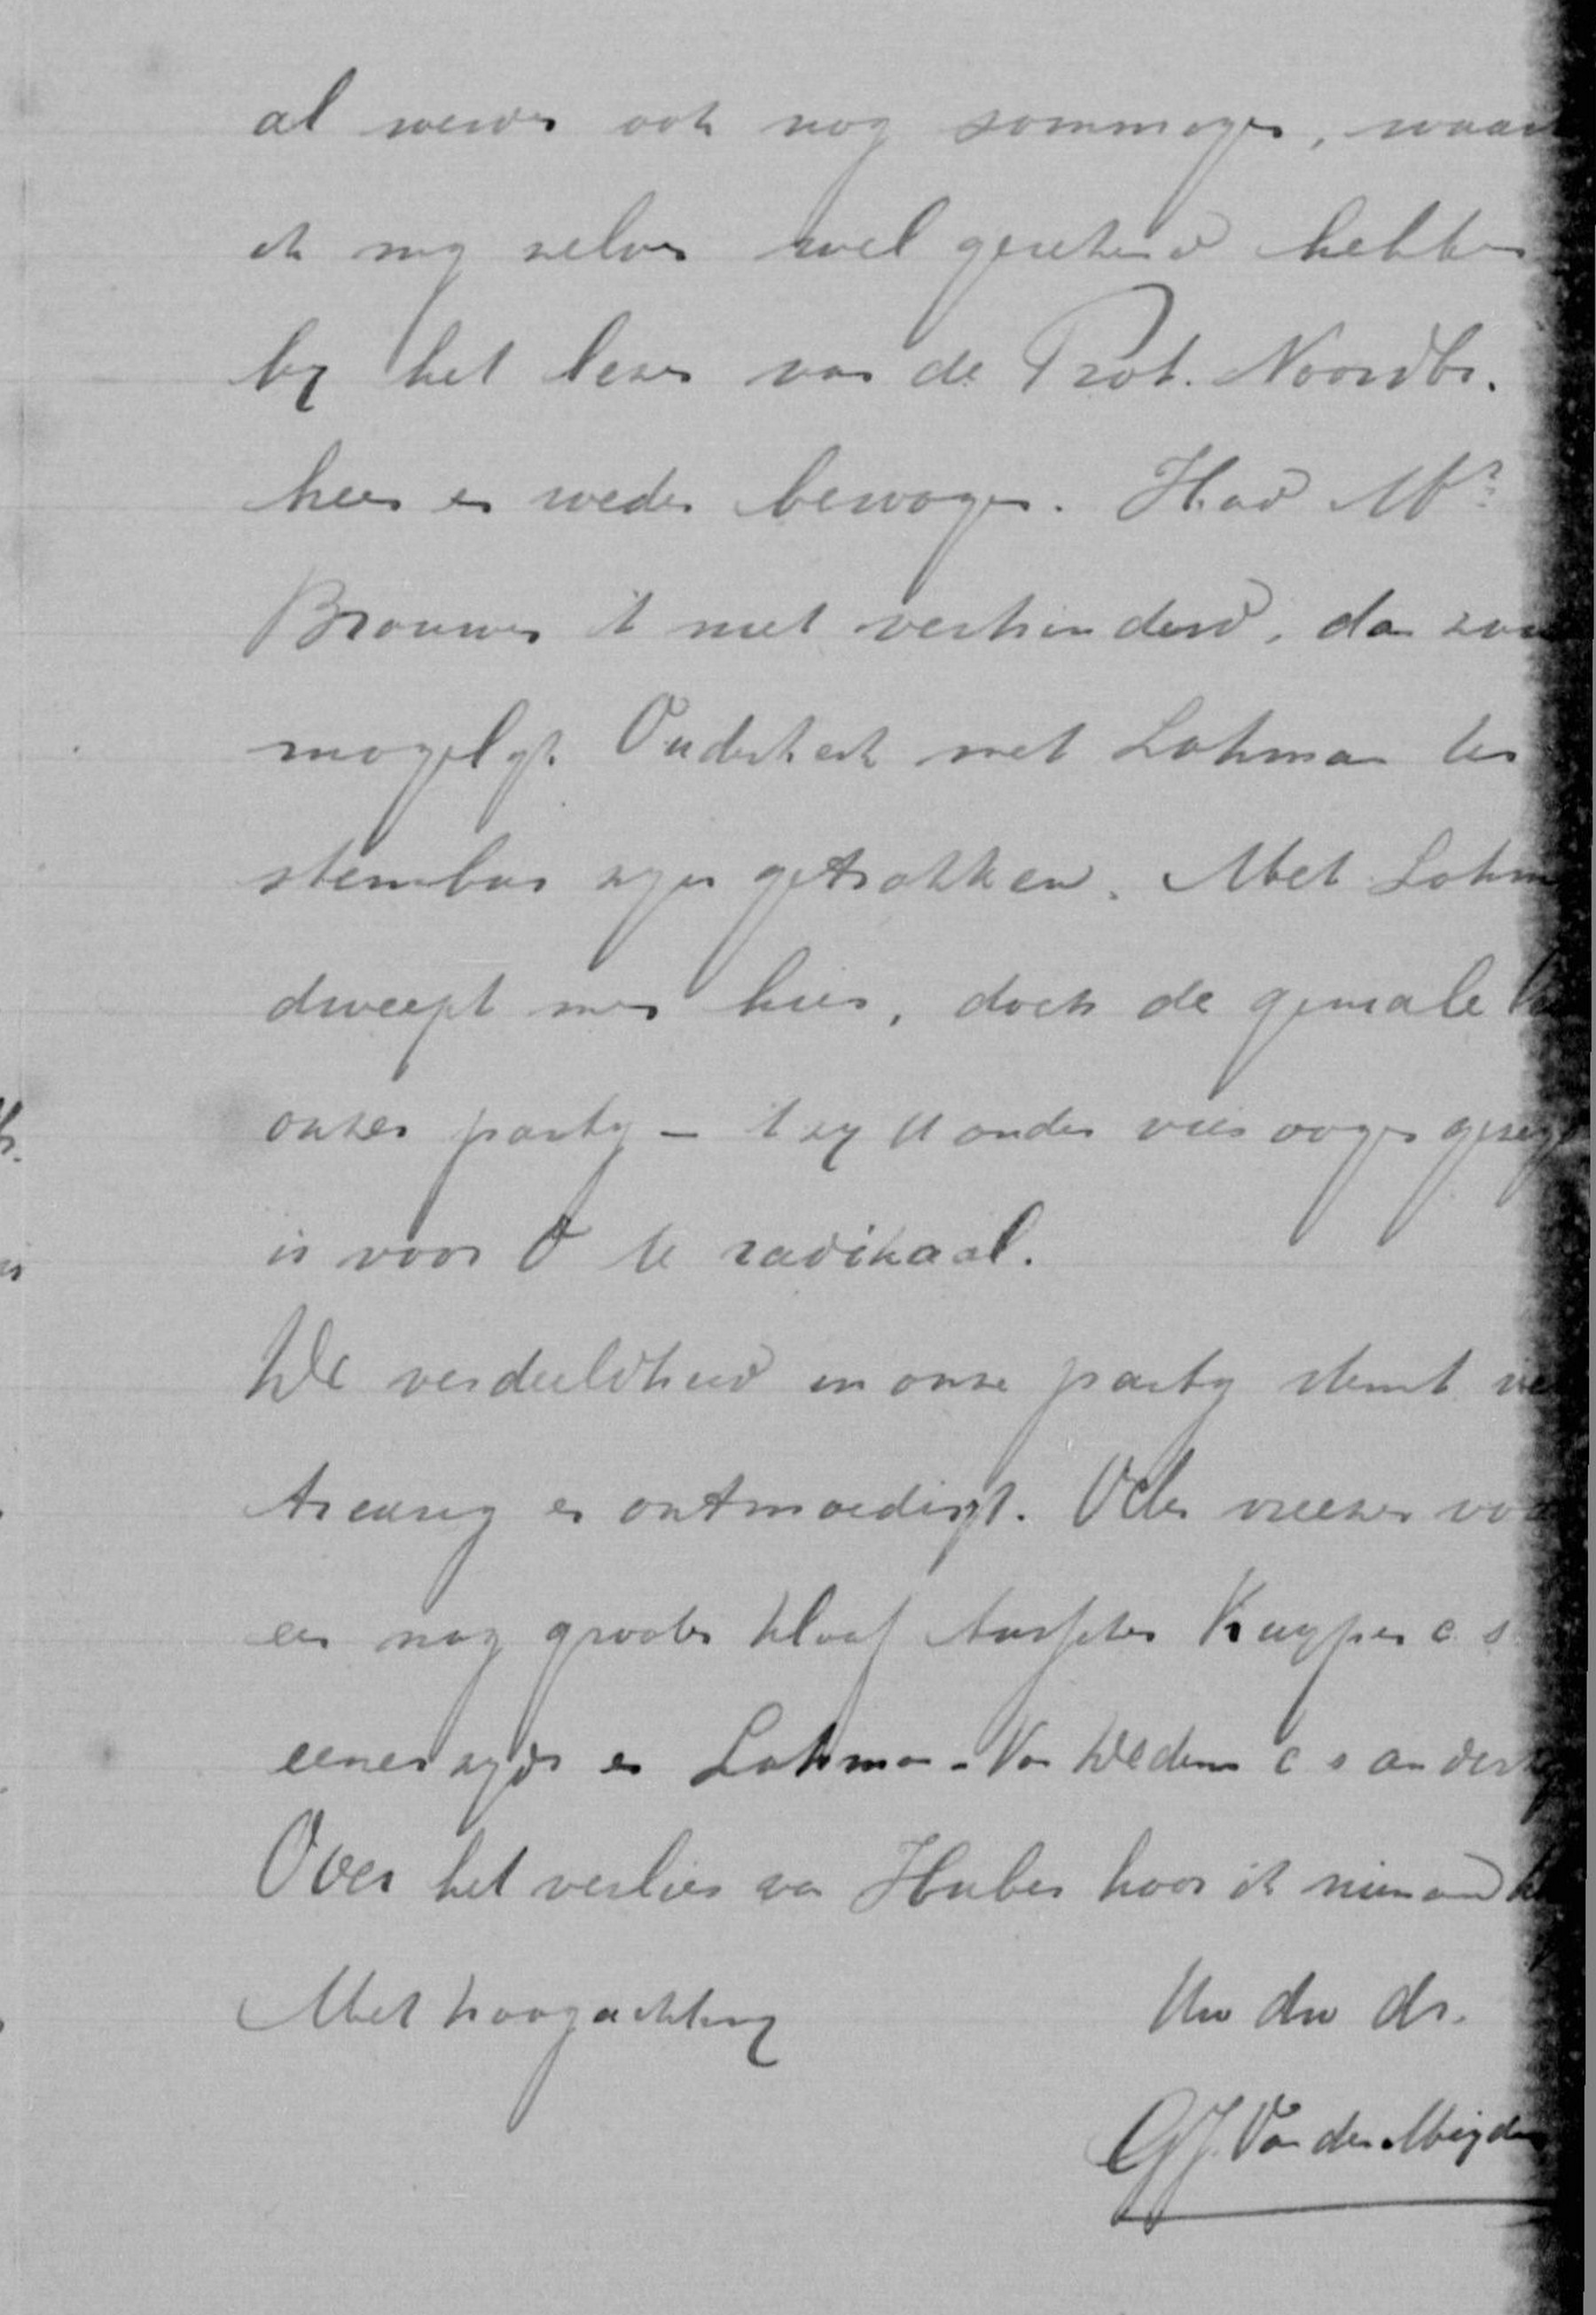 al werden ook nog sommigen, waar
ik mij zelven wel gerekend hebben
bij het lezen van de Prot. Noordbr.
heen en weder bewogen. Had Mr
Brouwer 't niet verhinderd, dan zou
mogelijk Ouderkerk met Lohman ter
stembus zijn getrokken. Met Lohm
dweept men hier, doch de geniale
onzer partij – 't zij U onder vier oogen gezegd
is voor O te radikaal.
De verdeeldheid in onze partij stemt
treurig en ontmoedigt. Velen vreezen voor
een nog grooter kloof tusschen Kuyper c s
eenerzijds en Lohman - Van Wedem c s anderz
Over het verlies van Huber hoor ik niemand
Met hoogachting
Uw dw dr.
GJ. Van der Meijden